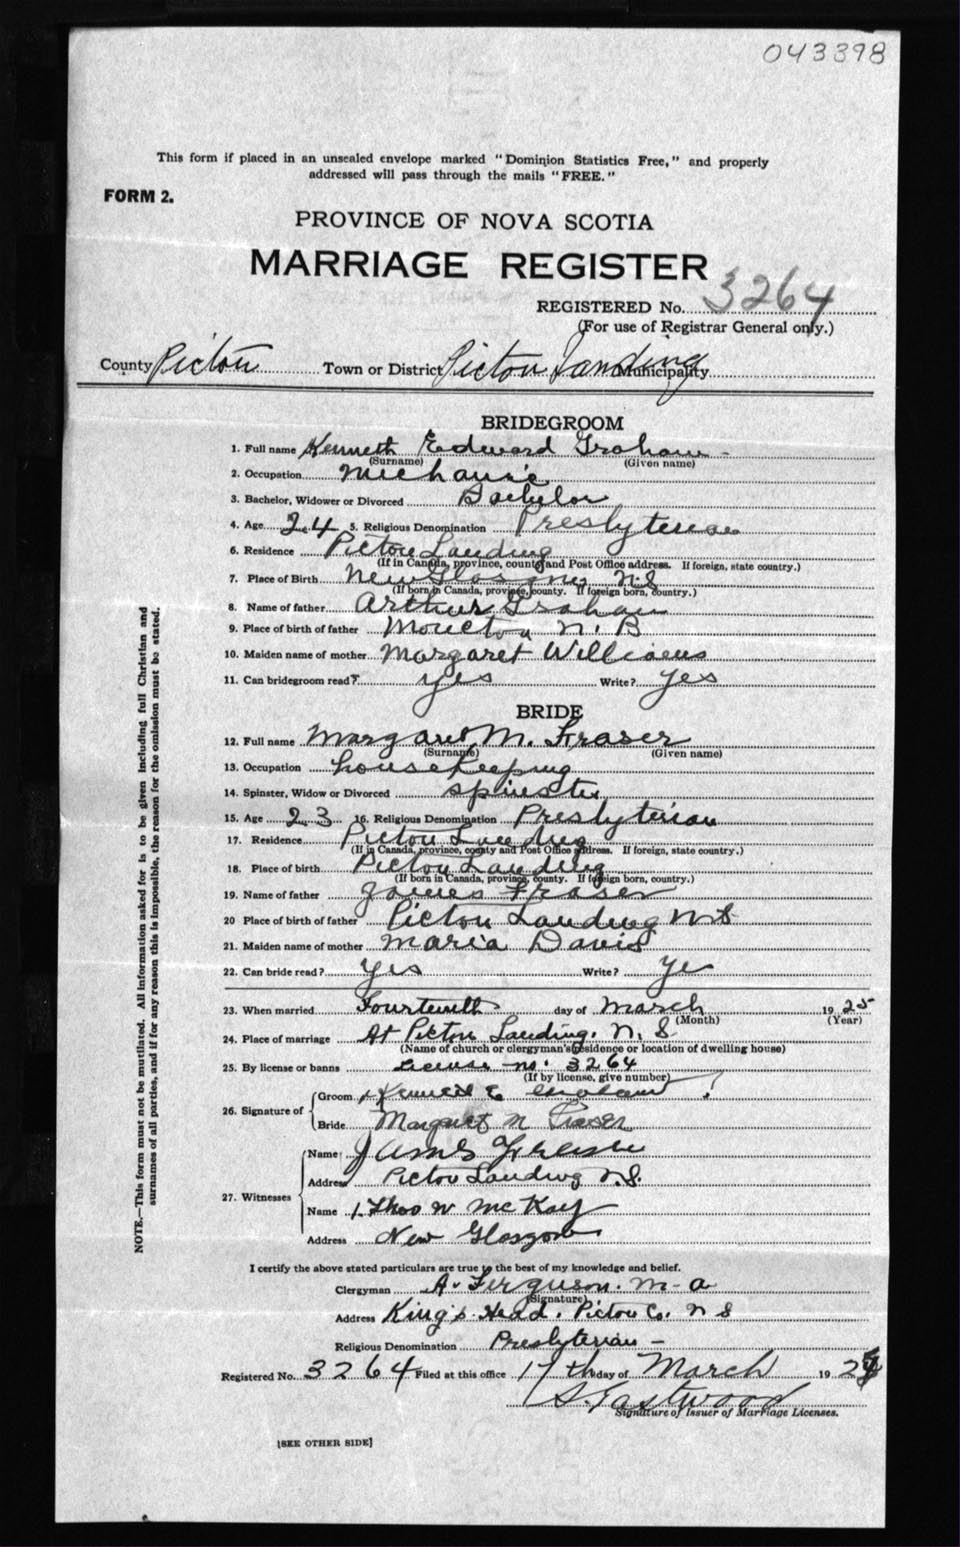 043398
This form if placed in an unsealed envelope marked "Dominion Statistics Free," and properly
addressed will pass through the mails "FREE."
FORM 2.
PROVINCE OF NOVA SCOTIA
MARRIAGE REGISTER
REGISTERED No. 3264
(For use of Registrar General only.)
County Pictou Town or District Pictou Landing Municipality
BRIDEGROOM
1. Full name Kenneth Edward Graham -
(Surname) (Given name)
2. Occupation Michanic
3. Bachelor, Widower or Divorced Bachelor
4. Age 24 5. Religious Denomination Presbyterian
6. Residence Pictou Landing
(If in Canada, province, county and Post Office address. If foreign, state country.)
7. Place of Birth New Glasgow N.S
(If born in Canada, province, county. If foreign born, country.)
8. Name of father Arthur Graham
9. Place of birth of father Moncton N. B
10. Maiden name of mother Margaret Williams
11. Can bridegroom read? yes Write? yes
BRIDE
12. Full name Margaret M. Fraser
(Surname) (Given name)
13. Occupation housekeeping
14. Spinster, Widow or Divorced spinster
15. Age 23 16. Religious Denomination Presbyterian
17. Residence Pictou Landing
(If in Canada, province, county and Post Office address. If foreign, state country.)
18. Place of birth Pictou Landing
(If born in Canada, province, county. If foreign born, country.)
19. Name of father James Fraser
20 Place of birth of father Pictou Landing N S
21. Maiden name of mother Maria Davis
22. Can bride read? yes Write? ye
23. When married Fourteenth day of March 1925
(Month) (Year)
24. Place of marriage At Pictou Landing. N. S
(Name of church or clergyman's residence or location of dwelling house)
25. By license or banns License no. 3264
(If by license, give number)
26. Signature of Groom Kenneth E Graham
Bride Margaret M Fraser
27. Witnesses Name James Fraser
Address Pictou Landing N.S.
Name 1. Thos W McKay
Address New Glasgow
I certify the above stated particulars are true to the best of my knowledge and belief.
Clergyman A. Ferguson. M-A
(Signature)
Address King's Head. Pictou Co. N S
Religious Denomination Presbyterian -
Registered No. 3264 Filed at this office 17th day of March 192
S. Eastwood
Signature of Issuer of Marriage Licenses.
[SEE OTHER SIDE]
NOTE.—This form must not be mutilated. All information asked for is to be given including full Christian and
surnames of all parties, and if for any reason this is impossible, the reason for the omission must be stated.